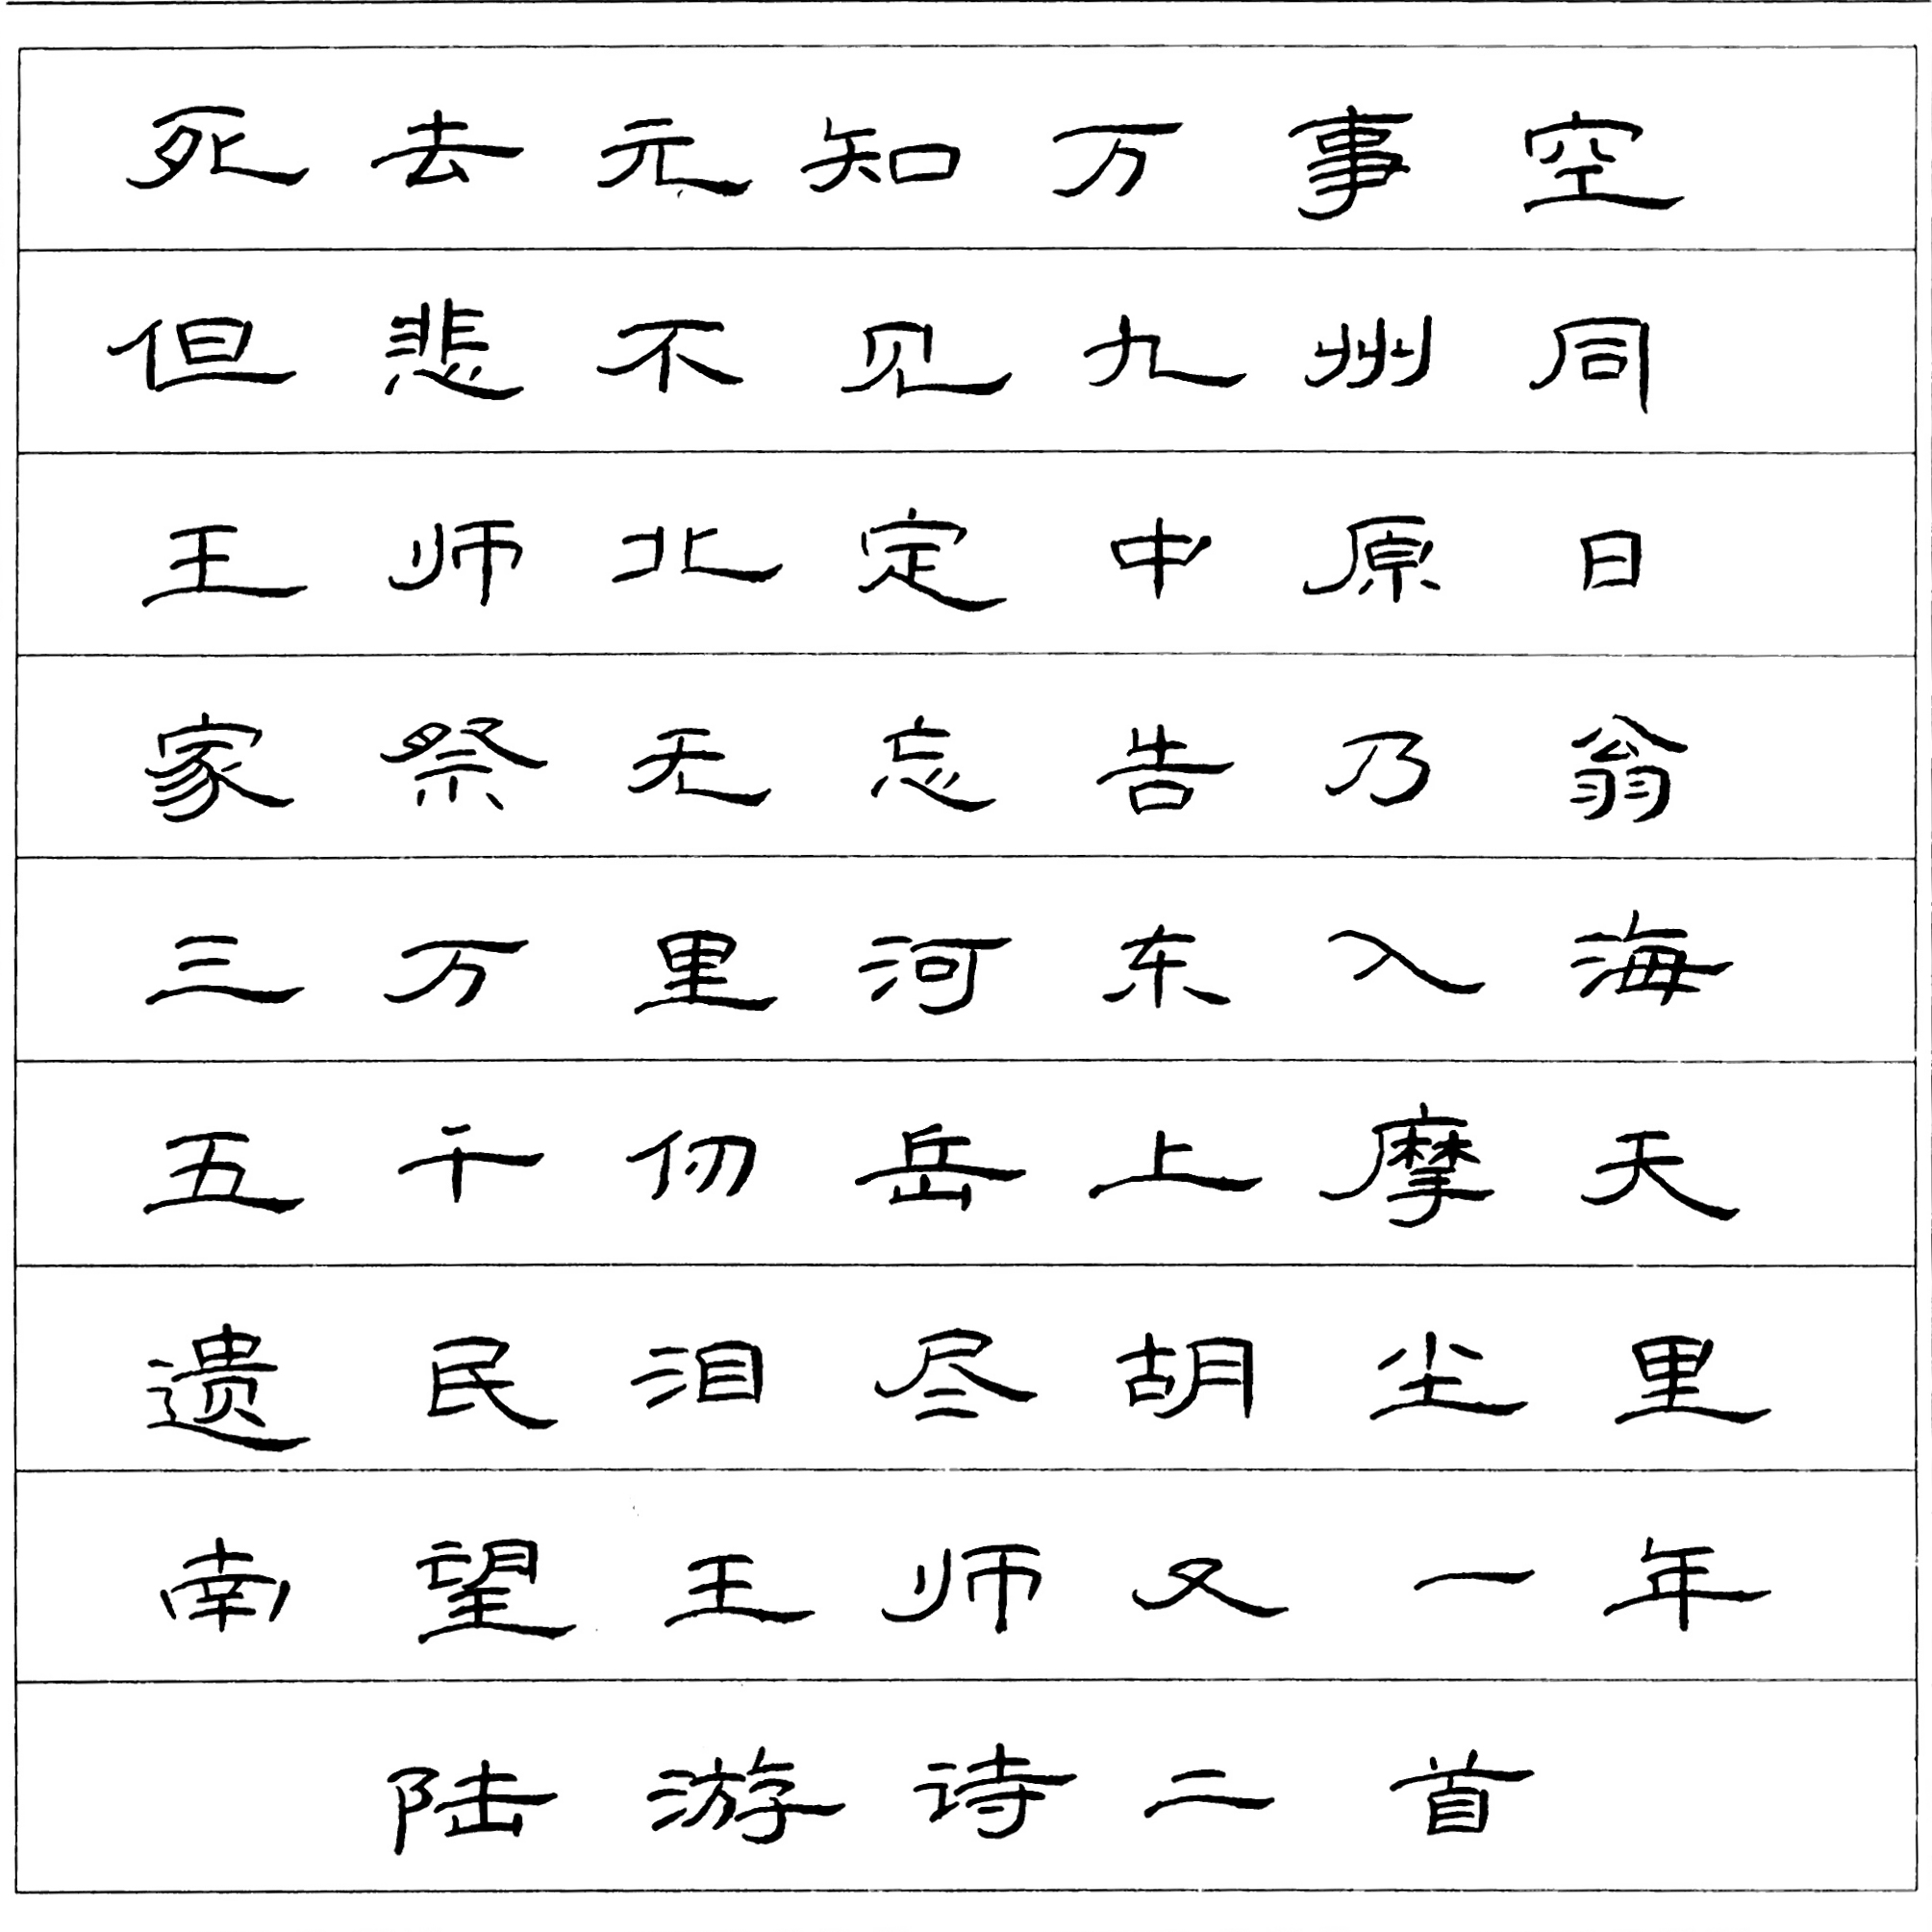 死去元知万事空
但悲不见九州同
王师北定中原日
家祭无忘告乃翁
三万里河东入海
五千仞岳上摩天
遗民泪尽胡尘里
南望王师又一年
陆游诗二首